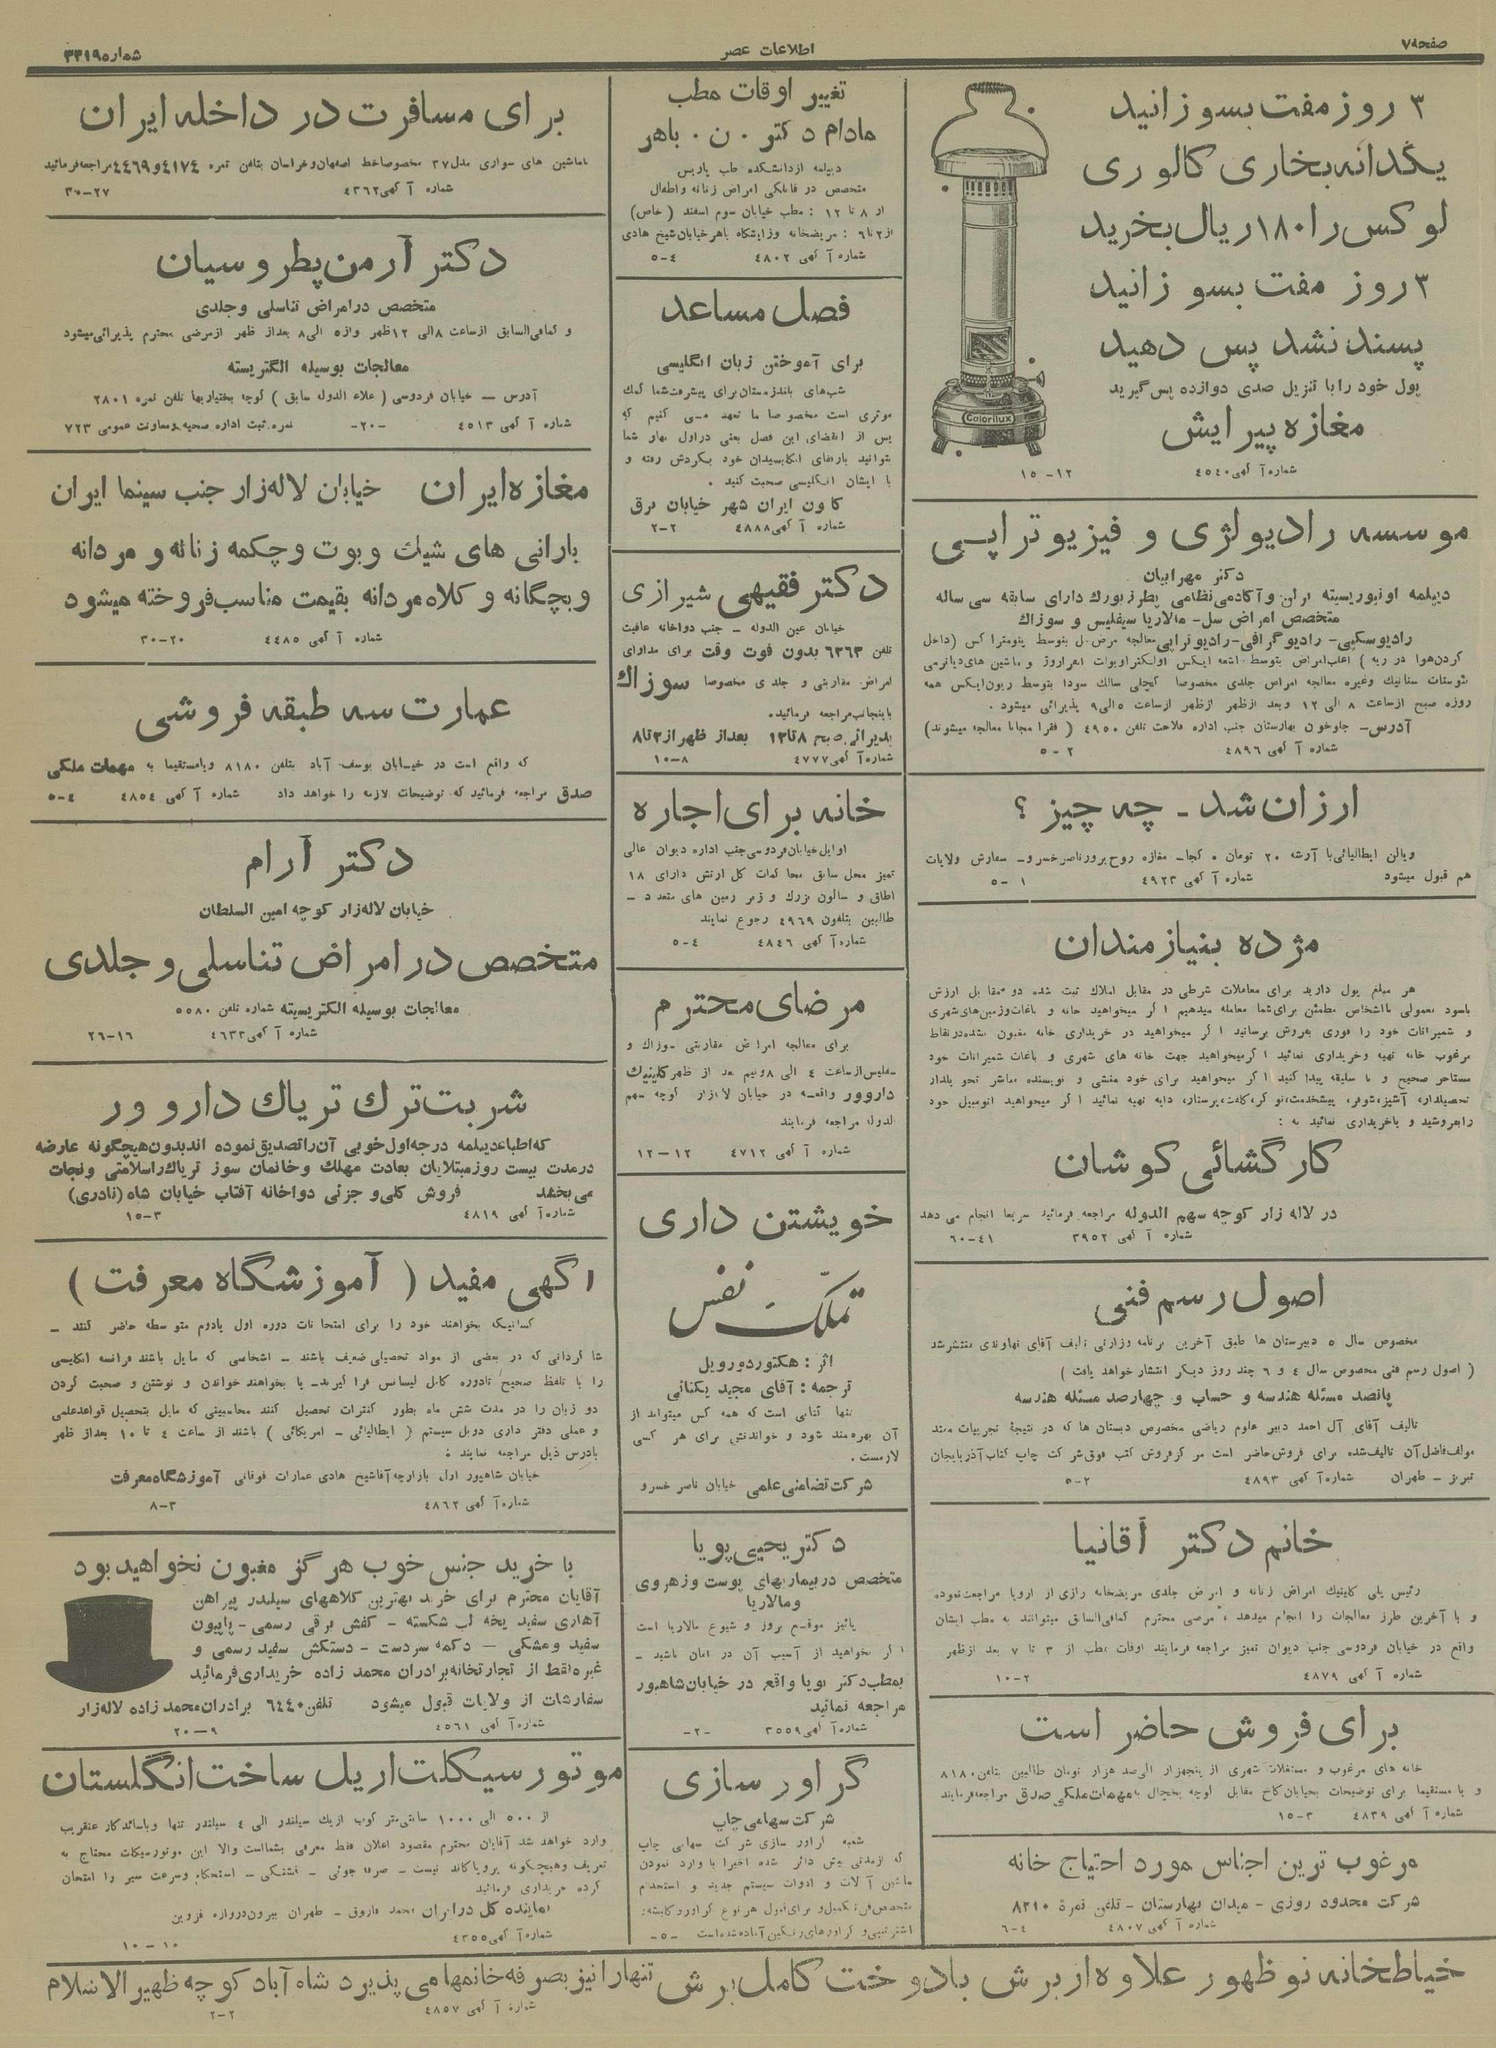 صفحه ۷
اطلاعات عصر
شماره ۳۳۱۹
۳ روز مفت بسوزانید
یکدانه بخاری کالوری
لوکس را ۱۸۰ ریال بخرید
۳ روز مفت بسوزانید
پسند نشد پس دهید
پول خود را با تنزیل صدی دوازده پس گیرید
مغازه پیرایش
شماره آگهی ۴۵۴۰
۱۲-۱۵
Calorilux
موسسه رادیولژی و فیزیوتراپی
دکتر مهرابیان
دیپلمه اونیورسیته برلن و آکادمی نظامی پطرزبورک دارای سابقه سی ساله
متخصص امراض سل- مالاریا سیفلیس و سوزاك
رادیوسکپی- رادیوگرافی- رادیوتراپی معالجه مرض سل بتوسط پنومتراکس (داخل
کردن هوا در ریه) اغلب امراض بتوسط اشعه ایکس
معالجه امراض جلدی مخصوصا کچلی سالك سودا بتوسط ریون ایکس همه
روزه صبح از ساعت ۸ الی ۱۲ و بعد از ظهر از ساعت ۵ الی ۹ پذیرائی میشود.
آدرس- جلوخوان بهارستان جنب اداره فلاحت تلفن ۴۹۵۰ (فقرا مجانا معالجه میشوند)
شماره آگهی ۴۸۹۶
۲-۵
ارزان شد - چه چیز ؟
ویالن ایطالیائی با آرشه ۲۰ تومان . کجا- مغازه روح پرور ناصر خسرو- سفارش ولایات
هم قبول میشود
شماره آگهی ۴۹۲۳
۱-۵
مژده بنیازمندان
هر مبلغ پول دارید برای معاملات شرطی در مقابل املاك ثبت شده دو مقابل ارزش
باسود معمولی با اشخاص مطمئن برای شما معامله میدهیم اگر میخواهید خانه و باغات و زمین های شهری
و شمیرانات خود را فوری بفروش برسانید اگر میخواهید در خریداری خانه مغبون نشده در نقاط
مرغوب خانه تهیه و خریداری نمائید اگر میخواهید جهت خانه های شهری و باغات شمیرانات خود
مستاجر صحیح و با سلیقه پیدا کنید اگر میخواهید برای خود منشی و نویسنده مباشر تحویلدار
تحصیلدار، آشپز، شوفر، پیشخدمت، نوکر، کلفت، پرستار، دایه تهیه نمائید اگر میخواهید اتومبیل خود
را بفروشید و یا خریداری نمائید به :
کارگشائی کوشان
در لاله زار کوچه سهم الدوله مراجعه فرمائید سریعا انجام می دهد
شماره آگهی ۳۹۵۲
۴۱-۶۰
اصول رسم فنی
مخصوص سال ۵ دبیرستان ها طبق آخرین برنامه وزارتی تالیف آقای نهاوندی منتشر شد
( اصول رسم فنی مخصوص سال ۴ و ۶ چند روز دیگر انتشار خواهد یافت )
پانصد مسئله هندسه و حساب و چهارصد مسئله هندسه
تالیف آقای آل احمد دبیر علوم ریاضی مخصوص دبستان ها که در نتیجهٔ تجربیات ممتد
مولف فاضل آن تالیف شده برای فروش حاضر است مرکز فروش کتب فوق شرکت چاپ کتاب آذربایجان
تبریز - طهران
شماره آگهی ۴۸۹۳
۲-۵
خانم دکتر آقانیا
رئیس پلی کلینیك امراض زنانه و امراض جلدی مریضخانه رازی از اروپا مراجعت نموده
و با آخرین طرز معالجات را انجام میدهد، مرضی محترم کمافی السابق میتوانند به مطب ایشان
واقع در خیابان فردوسی جنب دیوان تمیز مراجعه فرمایند اوقات مطب از ۳ تا ۷ بعد از ظهر
شماره آگهی ۴۸۷۹
۲-۱۰
برای فروش حاضر است
خانه های مرغوب و مستغلات شهری از پنجهزار الی صد هزار تومان طالبین بتلفن ۸۱۸۰
و یا مستقیما برای توضیحات بخیابان کاخ مقابل کوچه یخچال به مهمات ملکی صدق مراجعه فرمایند
شماره آگهی ۴۸۳۹
۳-۱۵
مرغوب ترین اجناس مورد احتیاج خانه
شرکت محدود روزی - میدان بهارستان - تلفن نمرهٔ ۸۲۱۰
شماره آگهی ۴۸۰۷
۴-۶
تغییر اوقات مطب
مادام دکتر . ن . باهر
دیپلمه از دانشکده طب پاریس
متخصص در قابلگی امراض زنانه و اطفال
از ۸ تا ۱۲ : مطب خیابان سوم اسفند (خاص)
از ۲ تا ۶ : مریضخانه و زایشگاه باهر خیابان شیخ هادی
شماره آگهی ۴۸۰۲
۴-۵
فصل مساعد
برای آموختن زبان انگلیسی
شب های بلند زمستان برای پیشرفت شما کمك
موثری است مخصوصا ما تعهد می کنیم که
پس از انقضای این فصل یعنی در اول بهار شما
بتوانید با رفقای انگلیسیدان خود بگردش رفته و
با ایشان انگلیسی صحبت کنید .
کانون ایران شهر خیابان برق
شماره آگهی ۴۸۸۸
۲-۲
دکتر فقیهی شیرازی
خیابان عین الدوله - جنب دواخانه عافیت
تلفن ۶۲۶۳ بدون فوت وقت برای مداوای
امراض مقاربتی و جلدی مخصوصا سوزاك
باینجانب مراجعه فرمائید.
پذیرائی صبح ۸ تا ۱۲ بعد از ظهر از ۲ تا ۸
شماره آگهی ۴۷۷۷
۸-۱۰
خانه برای اجاره
اوایل خیابان فردوسی جنب اداره دیوان عالی
تمیز محل سابق محاکمات کل ارتش دارای ۱۸
اطاق و سالون بزرك و زیر زمین های متعدد -
طالبین بتلفون ۴۹۶۹ رجوع نمایند
شماره آگهی ۴۸۴۶
۴-۵
مرضای محترم
برای معالجه امراض مقاربتی سوزاك و
سفلیس از ساعت ۴ الی ۸ ونیم بعد از ظهر کلینیك
داروور واقعه در خیابان لاله زار کوچه سهم
الدوله مراجعه فرمایند
شماره آگهی ۴۷۱۲
۱۲-۱۲
خویشتن داری
تملّك نفس
اثر : هکتور دورویل
ترجمه : آقای مجید یکتائی
تنها کتابی است که همه کس میتواند از
آن بهره مند شود و خواندنش برای هر کسی
لازمست .
شرکت تضامنی علمی خیابان ناصر خسرو
دکتر یحیی پویا
متخصص در بیماریهای پوست و زهروی
و مالاریا
پائیز موقع بروز و شیوع مالاریا است
اگر بخواهید از آسیب آن در امان باشید -
بمطب دکتر پویا واقع در خیابان شاهپور
مراجعه نمائید
شماره آگهی ۳۵۵۹
-۲-
گراور سازی
شرکت سهامی چاپ
شعبه گراور سازی شرکت سهامی چاپ
که از مدتی پیش دائر شده اخیرا با وارد نمودن
ماشین آلات و ادوات سیستم جدید و استخدام
متخصص فنی تکمیل و برای قبول هر نوع گراور و کلیشه
و گراورهای رنگین آماده شده است
-۵-
برای مسافرت در داخله ایران
با ماشین های سواری مدل ۳۷ مخصوصا خط اصفهان و خراسان بتلفن نمره ۴۱۷۴ و ۴۴۶۹ مراجعه فرمائید
شماره آگهی ۴۳۶۲
۲۷-۳۰
دکتر آرمن پطروسیان
متخصص در امراض تناسلی و جلدی
و کمافی السابق از ساعت ۸ الی ۱۲ ظهر و از ۵ الی ۸ بعد از ظهر از مرضی محترم پذیرائی میشود
معالجات بوسیله الکتریسته
آدرس - خیابان فردوسی ( علاء الدوله سابق ) کوچه بختیاریها تلفن نمره ۲۸۰۱
شماره آگهی ۴۵۱۳
-۲۰-
نمره ثبت اداره صحیه و معاونت عمومی ۷۲۳
مغازه ایران خیابان لاله زار جنب سینما ایران
بارانی های شیك و بوت و چکمه زنانه و مردانه
و بچگانه و کلاه مردانه بقیمت مناسب فروخته میشود
شماره آگهی ۴۴۸۵
۲۰-۳۰
عمارت سه طبقه فروشی
که واقع است در خیابان یوسف آباد بتلفن ۸۱۸۰ و یا مستقیما به مهمات ملکی
صدق مراجعه فرمائید که توضیحات لازمه را خواهد داد
شماره آگهی ۴۸۵۴
۴-۵
دکتر آرام
خیابان لاله زار کوچه امین السلطان
متخصص در امراض تناسلی و جلدی
معالجات بوسیله الکتریسیته شماره تلفن ۵۵۸۰
شماره آگهی ۴۶۳۳
۱۶-۲۶
شربت ترك تریاك داروور
که اطباء دیپلمه درجه اول خوبی آن را تصدیق نموده اند بدون هیچگونه عارضه
در مدت بیست روز مبتلایان بعادت مهلك و خانمان سوز تریاك را سلامتی و نجات
می بخشد
فروش کلی و جزئی دواخانه آفتاب خیابان شاه (نادری)
شماره آگهی ۴۸۱۹
۳-۱۵
اگهی مفید ( آموزشگاه معرفت )
کسانیکه بخواهند خود را برای امتحانات دوره اول یا دوم متوسطه حاضر کنند -
شاگردانی که در بعضی از مواد تحصیلی ضعیف باشند - اشخاصی که مایل باشند فرانسه انگلیسی
را با تلفظ صحیح تا دوره کامل لیسانس فرا گیرند- یا بخواهند خواندن و نوشتن و صحبت کردن
دو زبان را در مدت شش ماه بطور کنترات تحصیل کنند محاسبینی که مایل بتحصیل قواعد علمی
و عملی دفتر داری دوبل سیستم ( ایطالیائی - امریکائی ) باشند از ساعت ۴ تا ۱۰ بعد از ظهر
بآدرس ذیل مراجعه نمایند :
خیابان شاهپور اول بازارچه آقا شیخ هادی عمارات فوقانی آموزشگاه معرفت
شماره آگهی ۴۸۶۲
۳-۸
با خرید جنس خوب هرگز مغبون نخواهید بود
آقایان محترم برای خرید بهترین کلاههای سیلندر پیراهن
آهاری سفید یخه لب شکسته - کفش برقی رسمی - پاپیون
سفید و مشکی - دکمه سردست - دستکش سفید رسمی و
غیره فقط از تجارتخانه برادران محمد زاده خریداری فرمائید
سفارشات از ولایات قبول میشود تلفن ۶۴۴۰ برادران محمد زاده لاله زار
شماره آگهی ۴۵۶۱
۹-۲۰
موتور سیکلت اریل ساخت انگلستان
از ۵۰۰ الی ۱۰۰۰ سانتی متر کوب از یك سیلندر الی ۴ سیلندر تنها و با سائدکار عنقریب
وارد خواهد شد آقایان محترم مقصود اعلان فقط معرفی بشماست والا این موتورسیکلت محتاج به
تعریف و هیچگونه پروپاکاند نیست - صرفه جوئی - قشنگی - استحکام و سرعت سیر را امتحان
کرده خریداری فرمائید
نماینده کل در ایران محمد فاروق - طهران بیرون دروازه قزوین
شماره آگهی ۴۳۵۵
۱۰-۱۰
خیاطخانه نوظهور علاوه از برش با دوخت کامل برش تنها را نیز بصرفه خانمها می پذیرد شاه آباد کوچه ظهیر الاسلام
شماره آگهی ۴۸۵۷
۲-۲